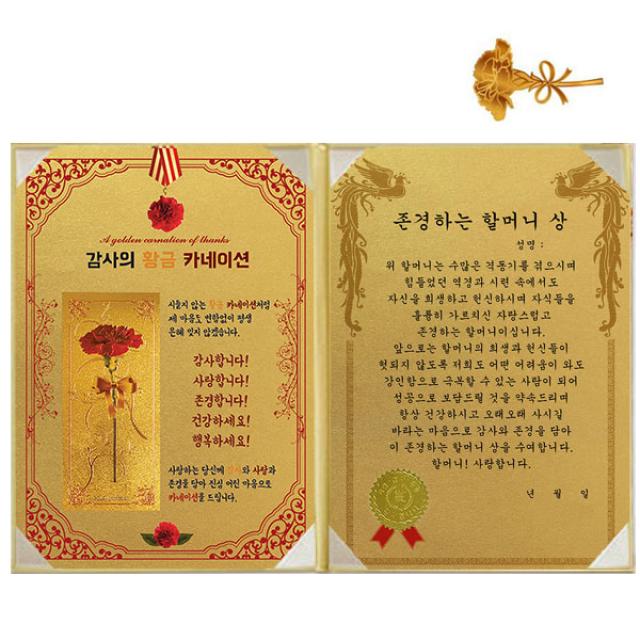 A golden carnation of thanks
감사의 황금 카네이션
시들지 않는 황금 카네이션처럼
제 마음도 변함없이 평생
은혜 잊지 않겠습니다.
감사합니다!
사랑합니다!
존경합니다!
건강하세요!
행복하세요!
사랑하는 당신께 감사와 사랑과
존경을 담아 진심 어린 마음으로
카네이션을 드립니다.
존경하는 할머니 상
성명 :
위 할머니는 수많은 격동기를 겪으시며
힘들었던 역경과 시련 속에서도
자신을 희생하고 헌신하시며 자식들을
훌륭히 가르치신 자랑스럽고
존경하는 할머니이십니다.
앞으로는 할머니의 희생과 헌신들이
헛되지 않도록 저희도 어떤 어려움이 와도
강인함으로 극복할 수 있는 사람이 되어
성공으로 보답드릴 것을 약속드리며
항상 건강하시고 오래오래 사시길
바라는 마음으로 감사와 존경을 담아
이 존경하는 할머니 상을 수여합니다.
할머니! 사랑합니다.
년 월 일